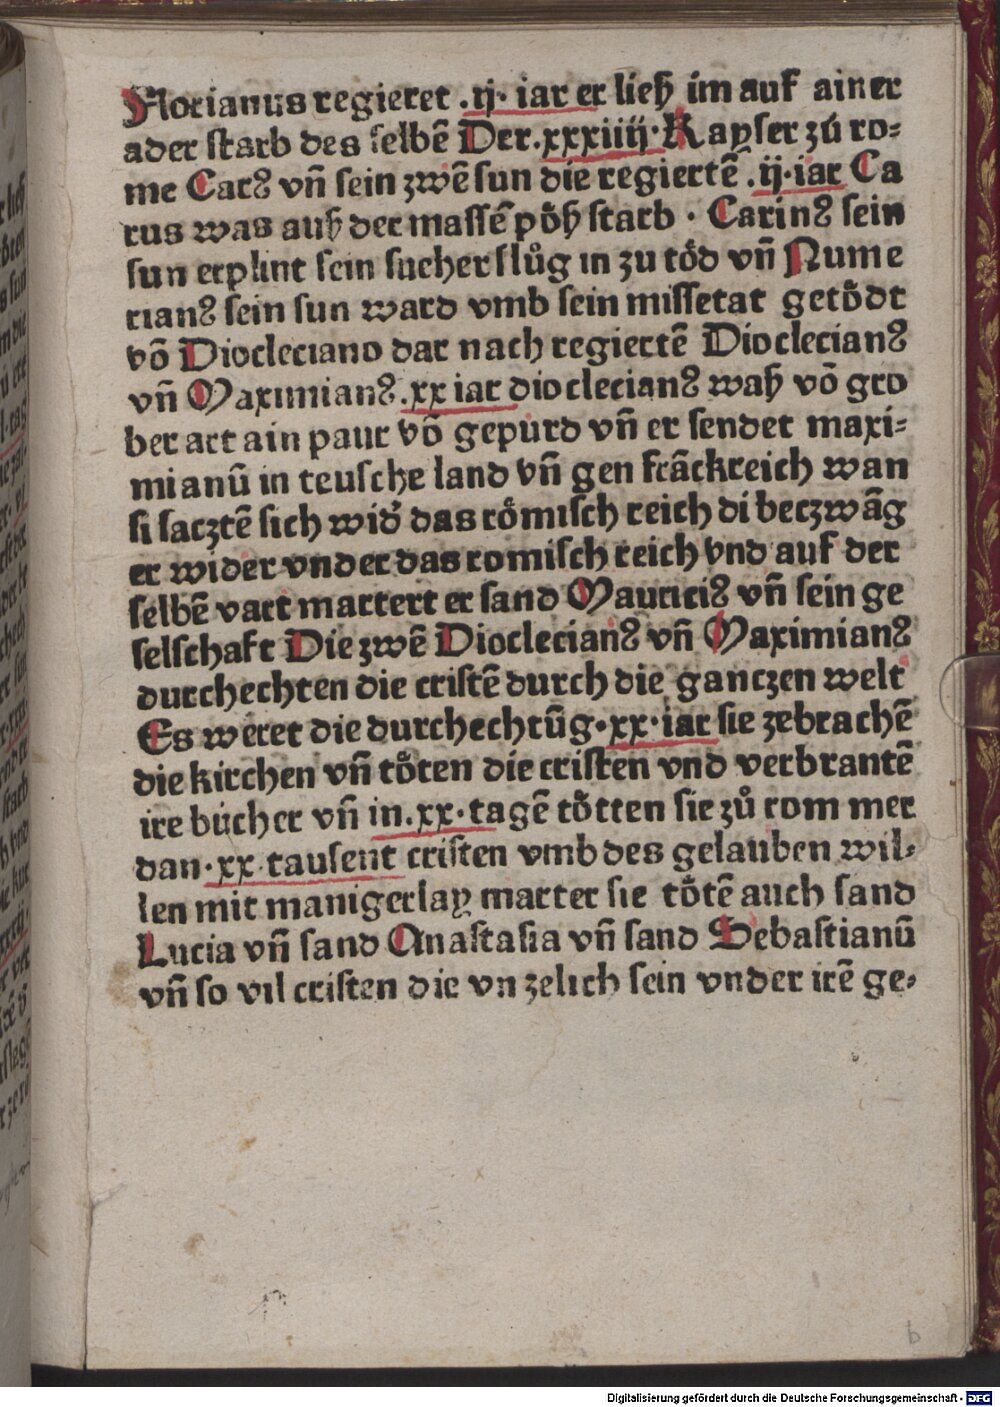 Florianus regieret .ij. iar er ließ im auf ainer
ader starb des selbē Der .xxxiiij. Kayser zů ro⸗
me Carꝰ vn̄ sein zwē sun die regiertē .ij. iar Ca
rus was auß der massē pöß starb . Carinꝰ sein
sun erplint sein sucher slůg in zu töd vn̄ Nume
rianꝰ sein sun ward vmb sein missetat getödt
vō Diocleciano dar nach regiertē Dioclecianꝰ
vn̄ Maximianꝰ .xx iar dioclecianꝰ waß vō gro
ber art ain paur vō gepurd vn̄ er sendet maxi⸗
mianū in teusche land vn̄ gen frāckreich wan
si sacztē sich wid̕ das römisch reich di beczwāg
er wider vnder das romisch reich vnd auf der
selbē vart martert er sand Mauriciꝰ vn̄ sein ge
selschaft Die zwē Dioclecianꝰ vn̄ Maximianꝰ
durchechten die cristē durch die ganczen welt
Es weret die durchechtūg . xx . iar sie zebrachē
die kirchen vn̄ töten die cristen vnd verbrantē
ire bücher vn̄ in .xx. tagē tötten sie zů rom mer
dan . xx tausent cristen vmb des gelauben wil⸗
len mit manigerlay marter sie tötē auch sand
Lucia vn̄ sand Anastasia vn̄ sand Sebastianū
vn̄ so vil cristen die vn zelich sein vnder irē ge⸗
b
Digitalisierung gefördert durch die Deutsche Forschungsgemeinschaft - DFG